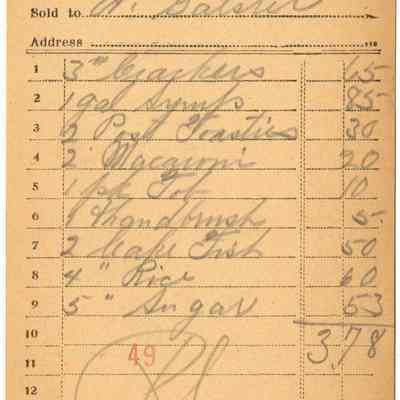 Sold to N. Galster
Address 110
1 3 " Crackers 65
2 1 gal Syrup 85
3 2 Post Toasties 30
4 2 Macaroni 20
5 1 pk Tob 10
6 1 Handbrush 5
7 2 Cake Fish 50
8 4 " Rice 60
9 5 " Sugar 53
10 3,78
11 49
12